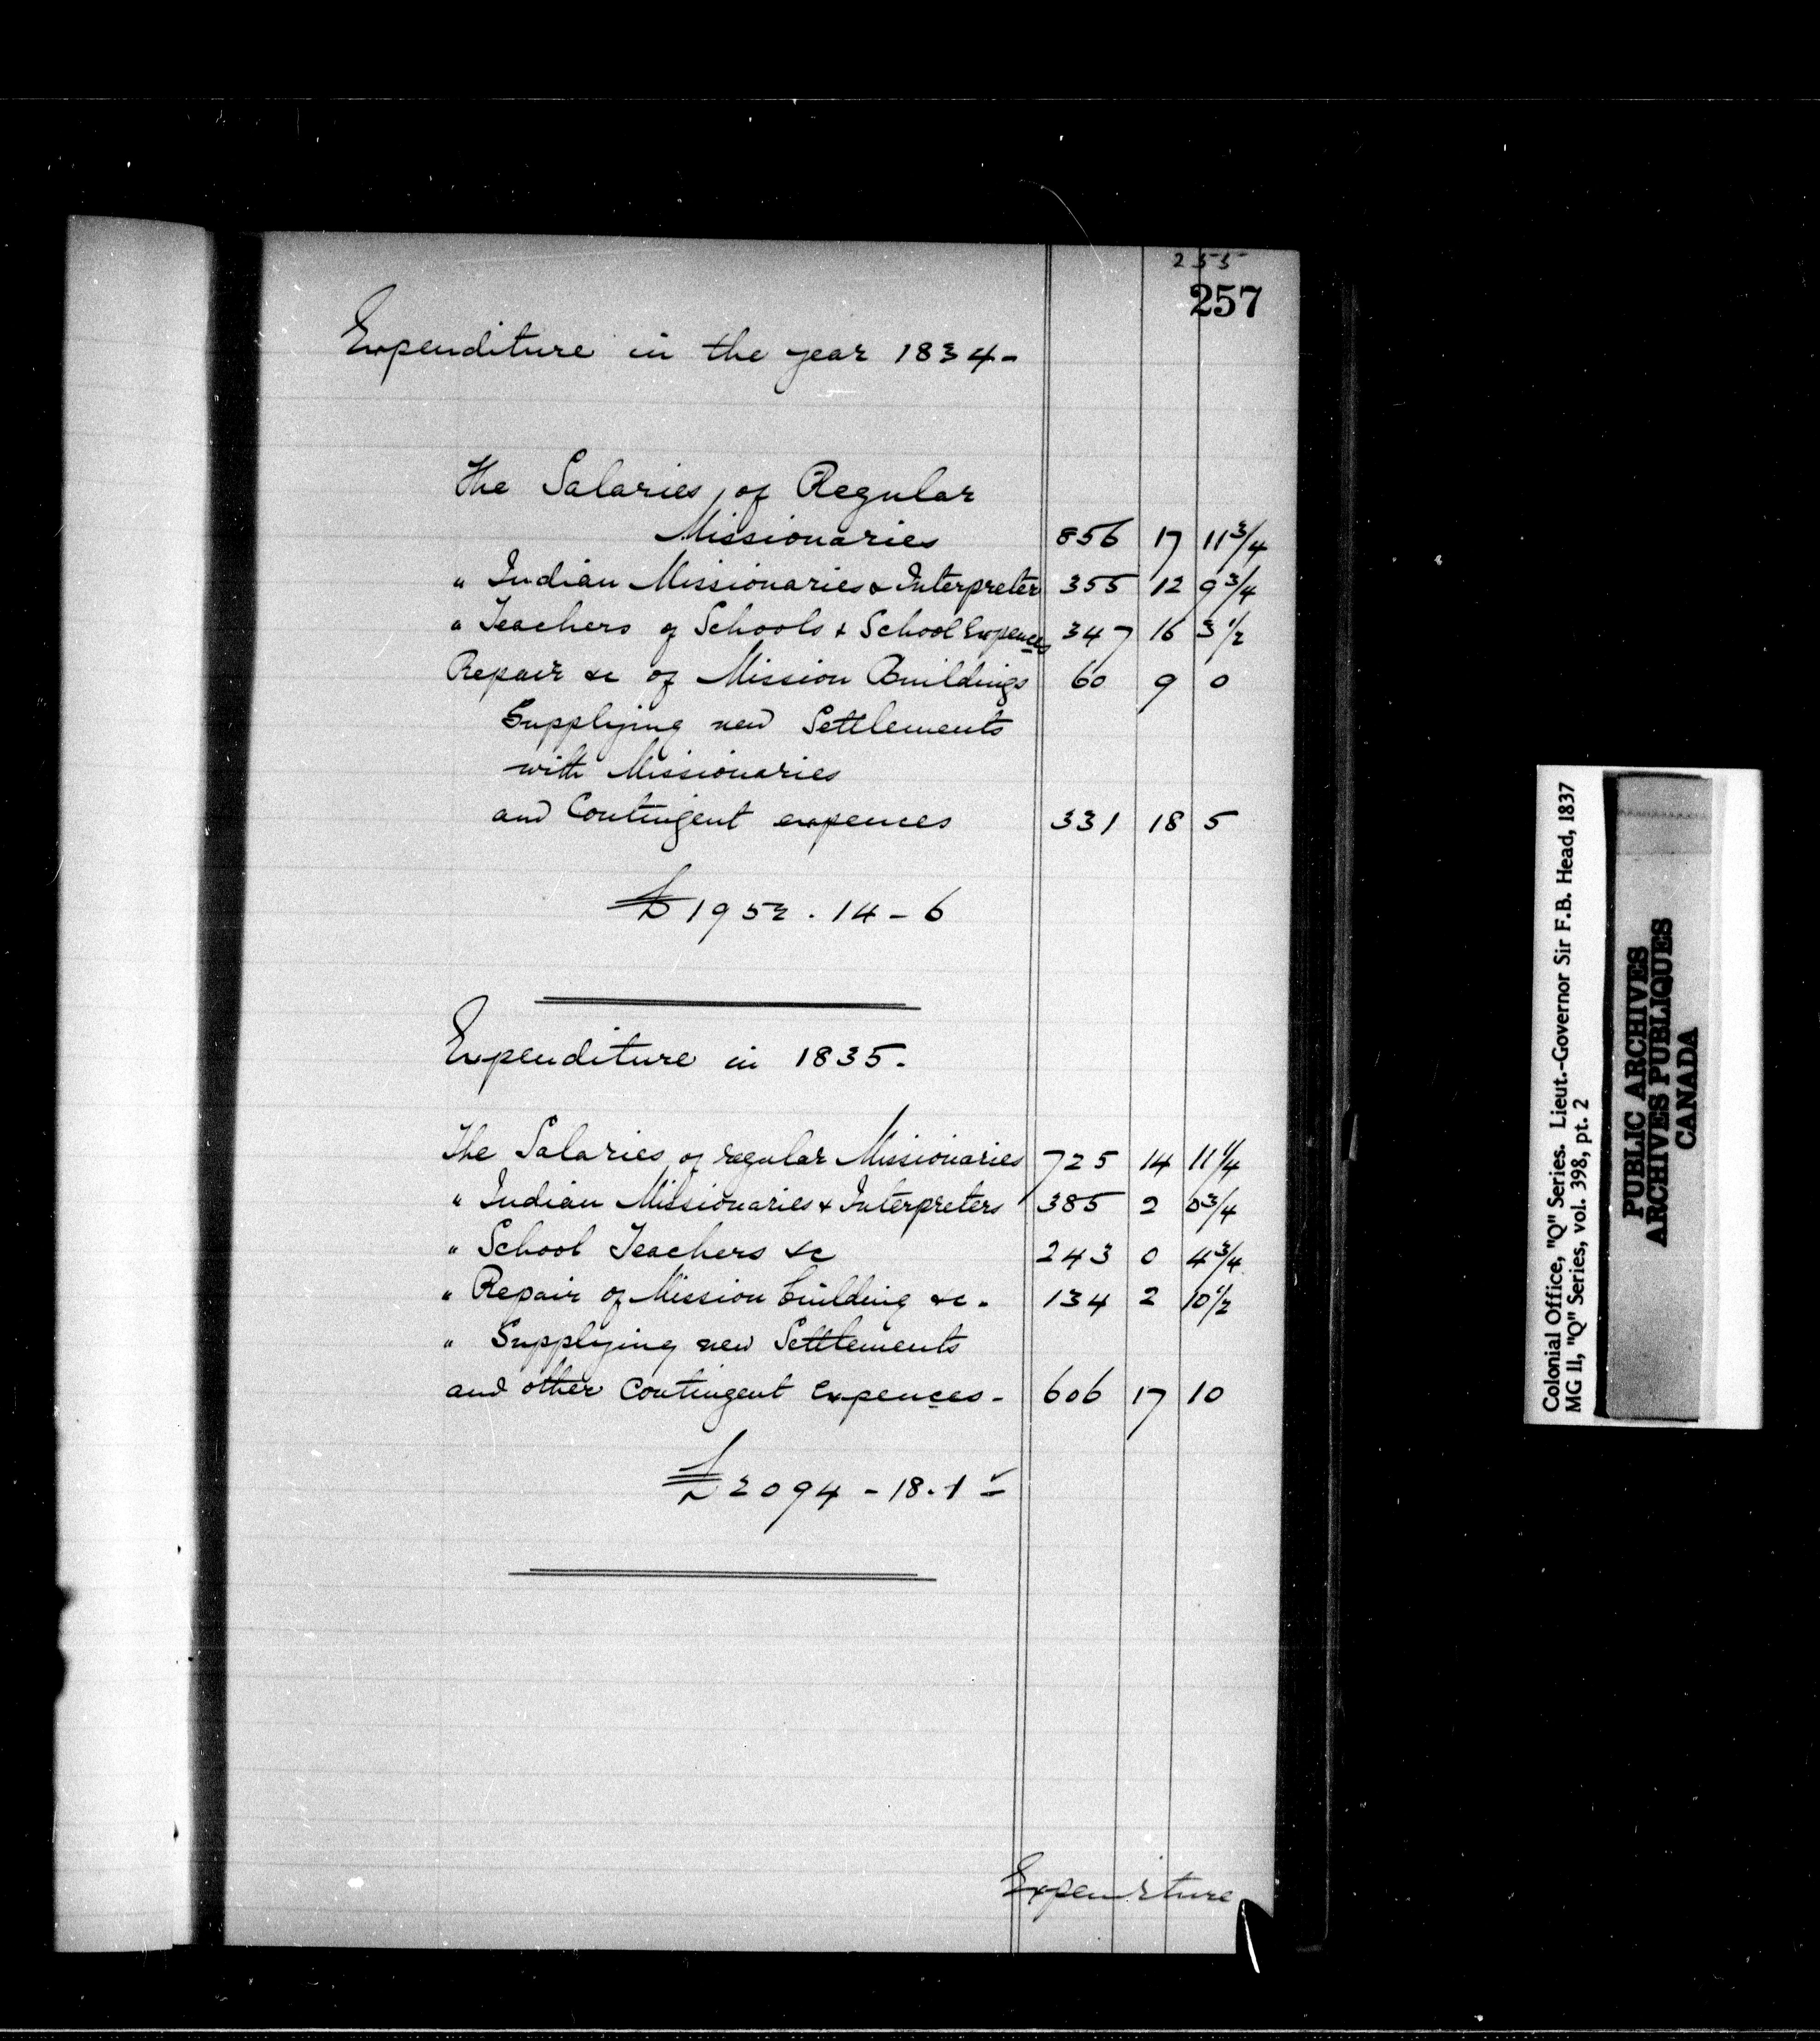 255
257
Expenditure in the year 1834-
The Salaries, of Regular
Missionaries 856 17 11 3/4
" Indian Missionaries & Interpreter 355 12 9 3/4
" Teachers of Schools & School Expences 347 16 3 1/2
Repair &c of Mission Buildings 60 9 0
Supplying new Settlements
with Missionaries
and Contingent expences 331 18 5
£1952.14-6
Expenditure in 1835.
The Salaries of regular Missionaries 725 14 11 1/4
" Indian Missionaries & Interpreters 385 2 0 3/4
" School Teachers &c 243 0 4 3/4
" Repair of Mission building &c. 134 2 10 1/2
" Supplying new Settlements
and other Contingent Expences- 606 17 10
£2094-18.1
Expenditure
Colonial Office, "Q" Series. Lieut.-Governor Sir F.B. Head, 1837
MG 11, "Q" Series, vol. 398, pt. 2
PUBLIC ARCHIVES
ARCHIVES PUBLIQUES
CANADA